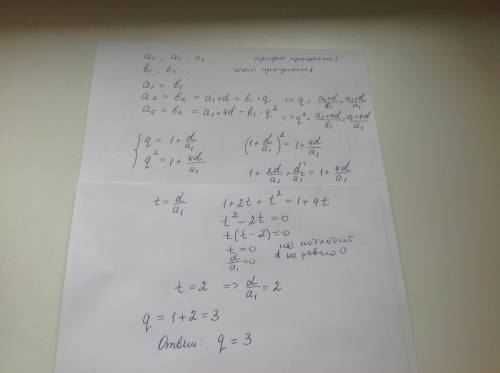 a₁ ; a₂ ; a₃ ... арифм прогрессия
b₁ ; b₂ ... геом прогрессия
a₁ = b₁
a₂ = b₂ = a₁+d = b₁·q => q = (a₁+d)/b₁ = (a₁+d)/a₁
a₅ = b₂ = a₁+4d = b₁·q² => q² = (a₁+4d)/b₁ = (a₁+4d)/a₁
{ q = 1 + d/a₁ (1 + d/a₁)² = 1 + 4d/a₁
q² = 1 + 4d/a₁
1 + 2d/a₁ + d²/a₁ = 1 + 4d/a₁
t = d/a₁ 1 + 2t + t² = 1 + 4t
t² − 2t = 0
t(t−2) = 0
t = 0 не подходит
d/a₁ = 0 d не равно 0
t = 2 => d/a₁ = 2
q = 1 + 2 = 3
Ответ: q = 3